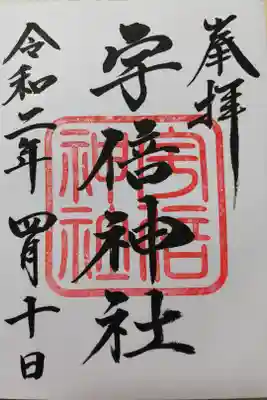 奉拝
宇倍神社
宇倍
神社
令和二年 四月十日